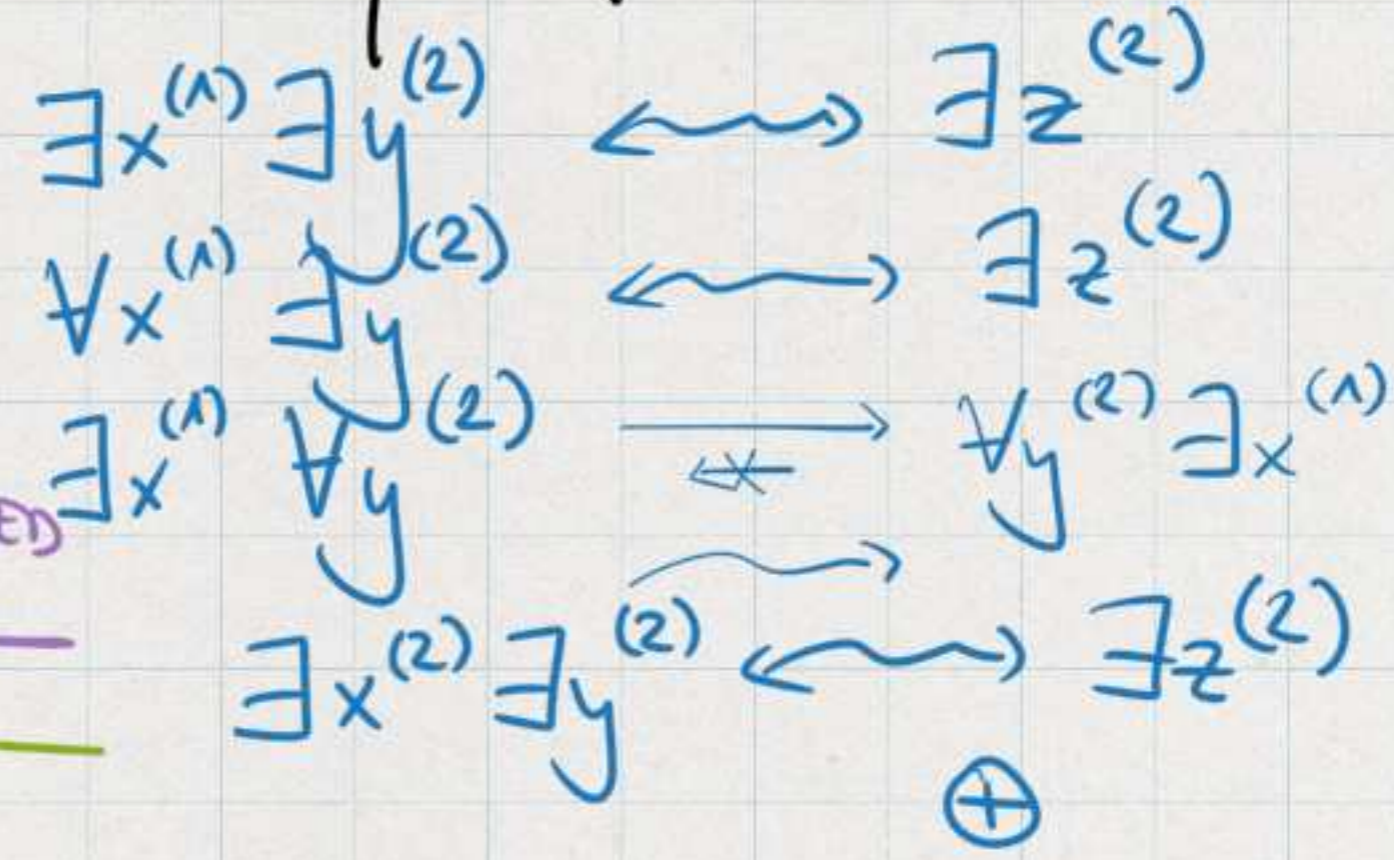 ∃x⁽¹⁾ ∃y⁽²⁾ ↭ ∃z⁽²⁾
∀x⁽¹⁾ ∃y⁽²⁾ ↭ ∃z⁽²⁾
∃x⁽¹⁾ ∀y⁽²⁾ → ↚ ∀y⁽²⁾ ∃x⁽¹⁾
ED
⇝
∃x⁽²⁾ ∃y⁽²⁾ ↭ ∃z⁽²⁾
⊕